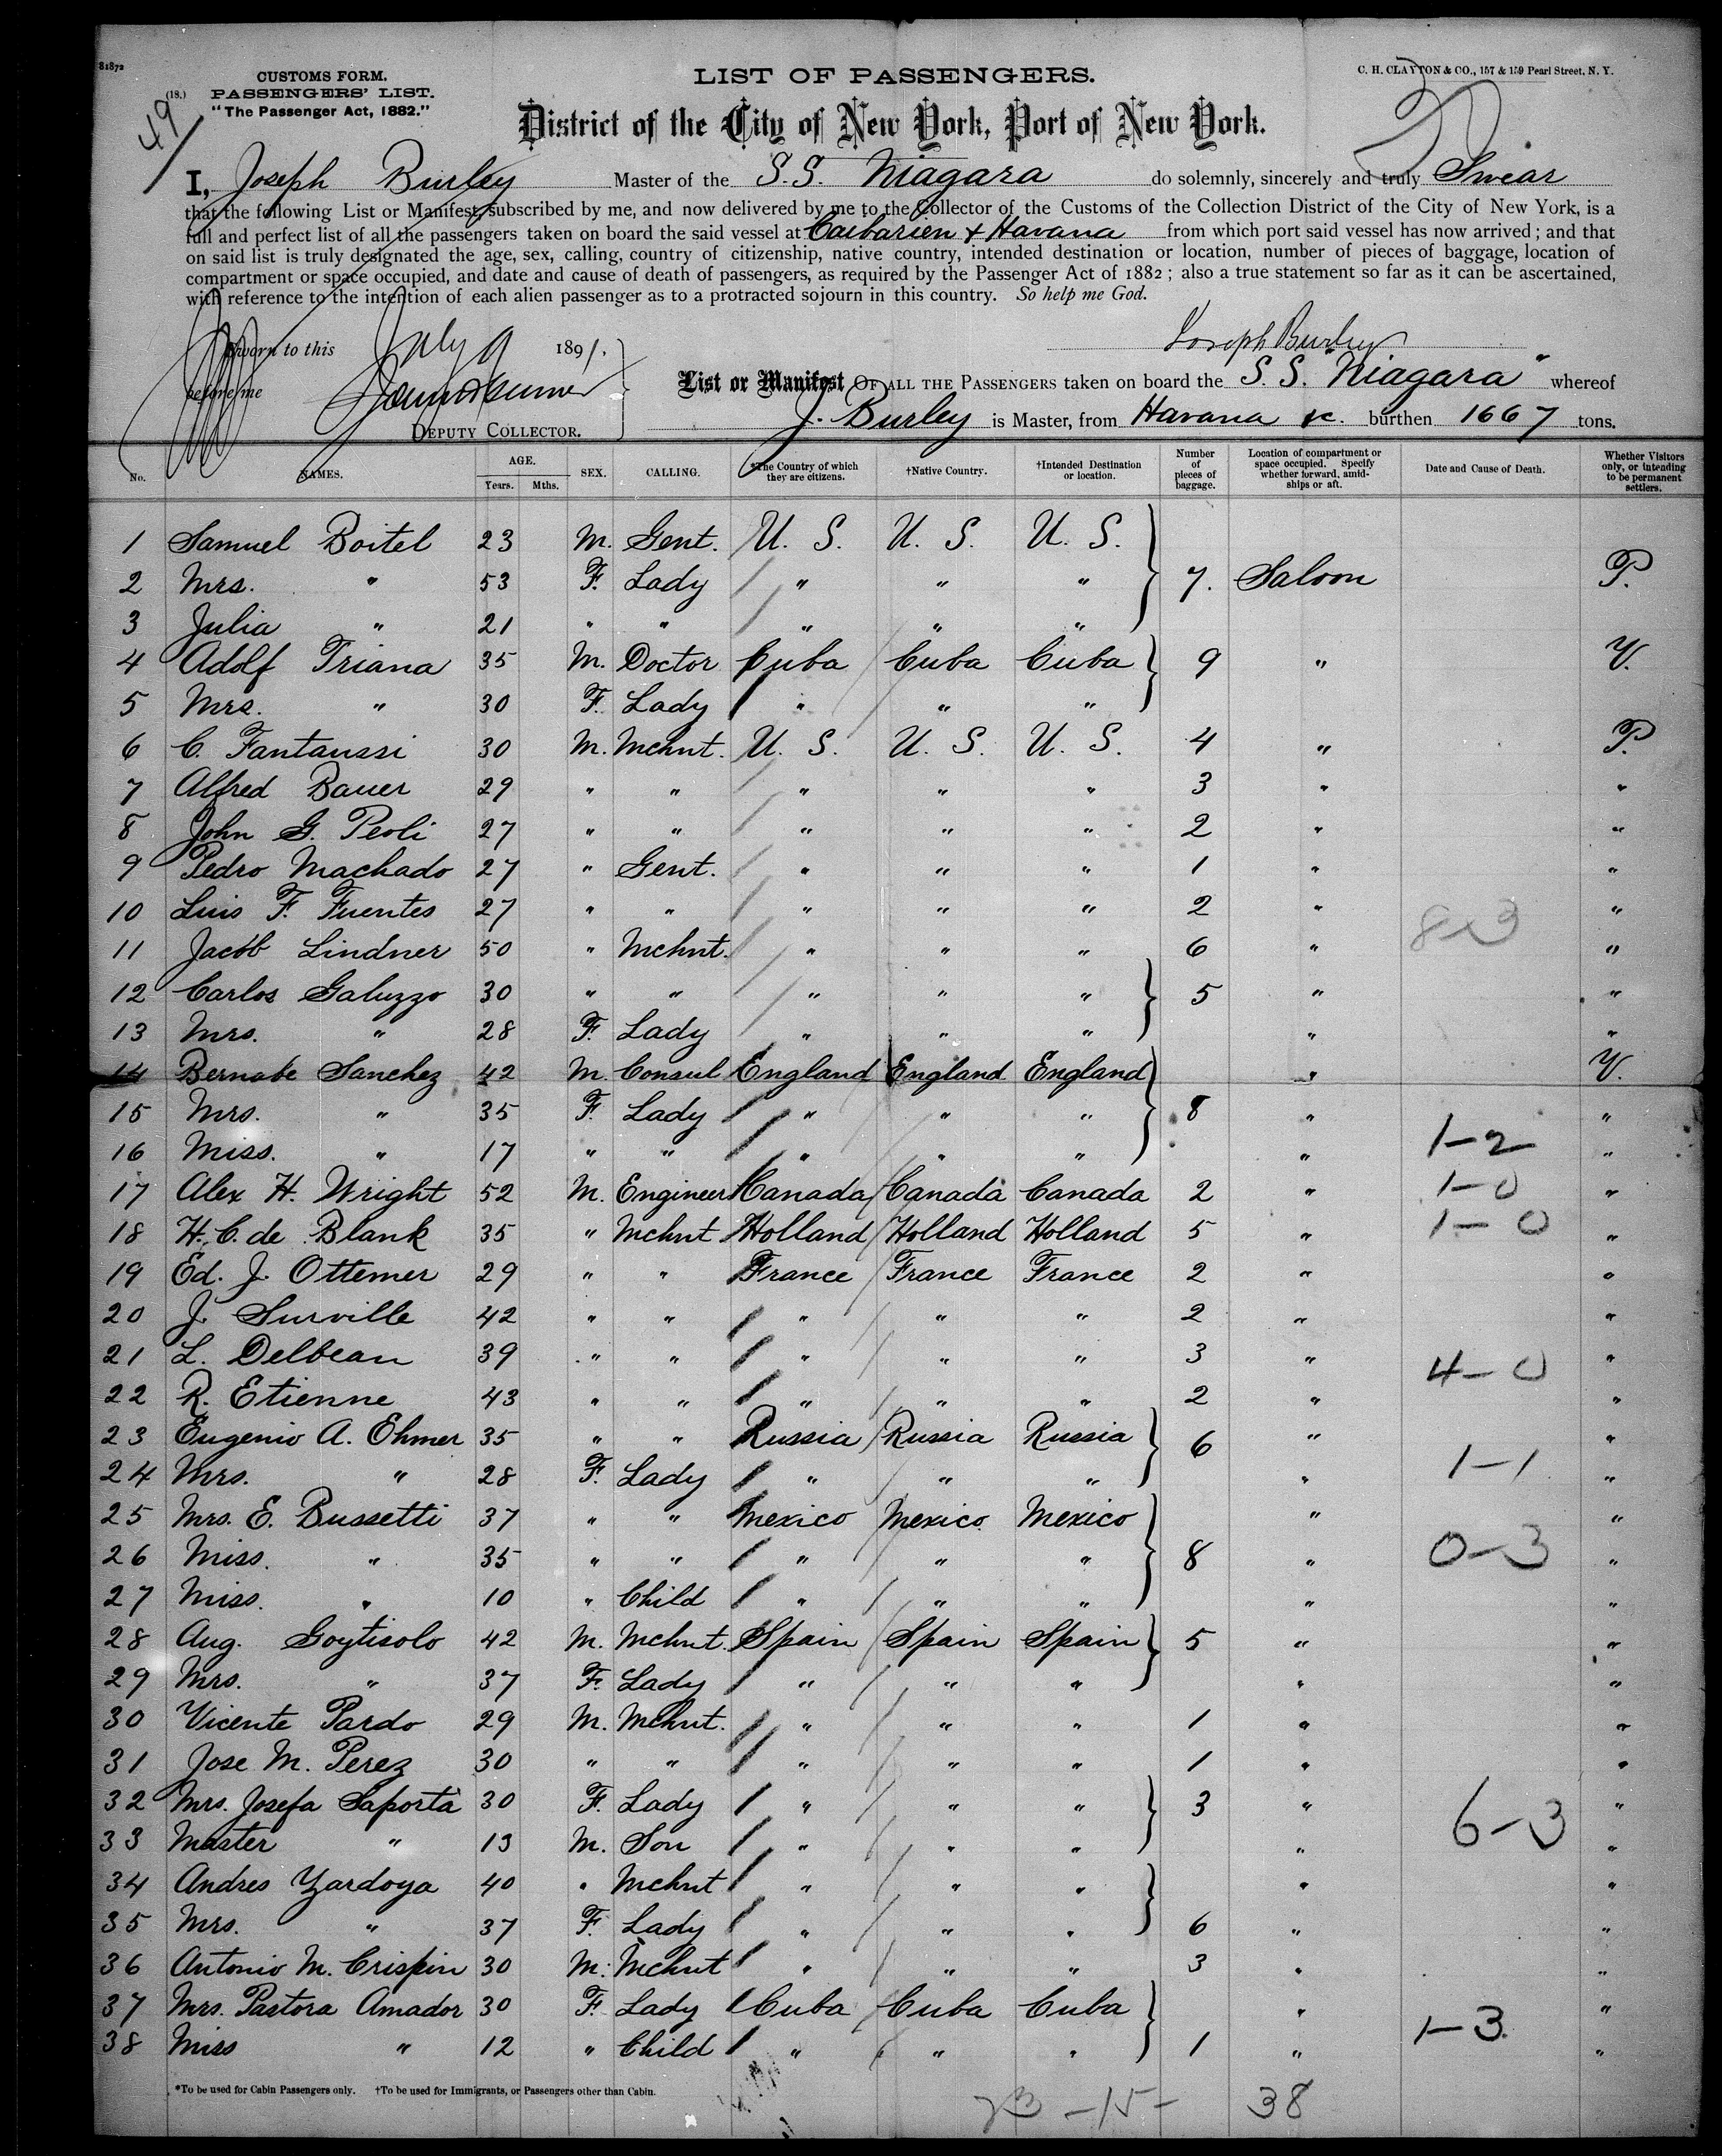 81872
CUSTOMS FORM.
(18.) PASSENGERS' LIST.
"The Passenger Act, 1882."
49
LIST OF PASSENGERS.
C. H. CLAYTON & CO., 157 & 159 Pearl Street, N. Y.
District of the City of New York, Port of New York.
I, Joseph Burley Master of the S.S. Niagara do solemnly, sincerely and truly Swear
that the following List or Manifest, subscribed by me, and now delivered by me to the Collector of the Customs of the Collection District of the City of New York, is a
full and perfect list of all the passengers taken on board the said vessel at Caibarien & Havana from which port said vessel has now arrived; and that
on said list is truly designated the age, sex, calling, country of citizenship, native country, intended destination or location, number of pieces of baggage, location of
compartment or space occupied, and date and cause of death of passengers, as required by the Passenger Act of 1882; also a true statement so far as it can be ascertained,
with reference to the intention of each alien passenger as to a protracted sojourn in this country. So help me God.
Sworn to this July 9 1891. Joseph Burley
before me
DEPUTY COLLECTOR.
List or Manifest OF ALL THE PASSENGERS taken on board the S. S. "Niagara" whereof
J. Burley is Master, from Havana &c. burthen 1667 tons.
No. NAMES. AGE. Years. Mths. SEX. CALLING. *The Country of which they are citizens. †Native Country. †Intended Destination or location. Number of pieces of baggage. Location of compartment or space occupied. Specify whether forward, amidships or aft. Date and Cause of Death. Whether Visitors only, or intending to be permanent settlers.
1 Samuel Boitel 23 M. Gent. U. S. U. S. U. S.
2 Mrs. " 53 F. Lady " " " 7. Saloon P.
3 Julia " 21 " " " " "
4 Adolf Triana 35 M. Doctor Cuba Cuba Cuba 9 " V.
5 Mrs. " 30 F. Lady " " "
6 C. Fantaussi 30 M. Mchnt. U. S. U. S. U. S. 4 " P.
7 Alfred Bauer 29 " " " " " 3 " "
8 John G. Peoli 27 " " " " " 2 " "
9 Pedro Machado 27 " Gent. " " " 1 " "
10 Luis F. Fuentes 27 " " " " " 2 " 8-3 "
11 Jacob Lindner 50 " Mchnt. " " " 6 " "
12 Carlos Galuzzo 30 " " " " " 5 " "
13 Mrs. " 28 F. Lady " " " " "
14 Bernabe Sanchez 42 M. Consul England England England " V.
15 Mrs. " 35 F. Lady " " " 8 " "
16 Miss. " 17 " " " " " " 1-2 "
17 Alex H. Wright 52 M. Engineer Canada Canada Canada 2 " 1-0 "
18 H. C. de Blank 35 " Mchnt. Holland Holland Holland 5 " 1-0 "
19 Ed. J. Ottemer 29 " " France France France 2 " "
20 J. Surville 42 " " " " " 2 " "
21 L. Delbeau 39 " " " " " 3 " 4-0 "
22 R. Etienne 43 " " " " " 2 " "
23 Eugenio A. Ehmer 35 " " Russia Russia Russia 6 " "
24 Mrs. " 28 F. Lady " " " " 1-1 "
25 Mrs. E. Bussetti 37 " " Mexico Mexico Mexico " "
26 Miss. " 35 " " " " " 8 " 0-3 "
27 Miss. " 10 " Child " " " " "
28 Aug. Goytisolo 42 M. Mchnt. Spain Spain Spain 5 " "
29 Mrs. " 37 F. Lady " " " " "
30 Vicente Pardo 29 M. Mchnt. " " " 1 " "
31 Jose M. Perez 30 " " " " " 1 " "
32 Mrs. Josefa Saporta 30 F. Lady " " " 3 " 6-3 "
33 Master " 13 M. Son " " " " "
34 Andres Yardoya 40 " Mchnt " " " " "
35 Mrs. " 37 F. Lady " " " 6 " "
36 Antonio M. Crispin 30 M. Mchnt " " " 3 " "
37 Mrs. Pastora Amador 30 F. Lady Cuba Cuba Cuba " "
38 Miss " 12 " Child " " " 1 " 1-3. "
*To be used for Cabin Passengers only. †To be used for Immigrants, or Passengers other than Cabin.
23-15- 38